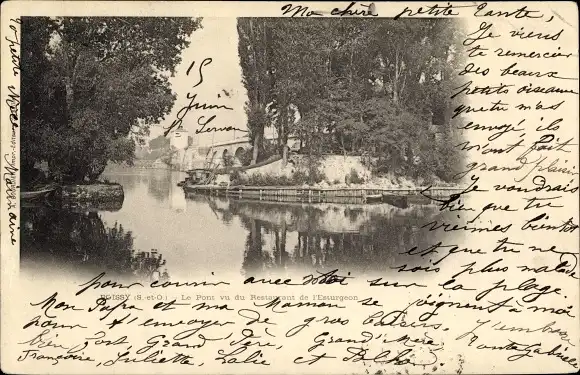 Ma chère petite Tante,
Je viens
te remercier
des beaux
petits oiseaux
que tu m'as
envoyé, ils
m'ont fait
grand plaisir
Je voudrais
bien que tu
viennes bientôt
et que tu ne
sois plus malade
pour courir avec moi sur la plage.
Mon Papa et ma Maman se joignent à moi
pour t'envoyer de gros baisers. J'embrasse
bien fort, Grand Père, Grand'Mère, Tante Gabrielle
Françoise, Juliette, Lalie et
Ta petite Nièce
15
Juin
POISSY (S.-et-O.) — Le Pont vu du Restaurant de l'Esturgeon